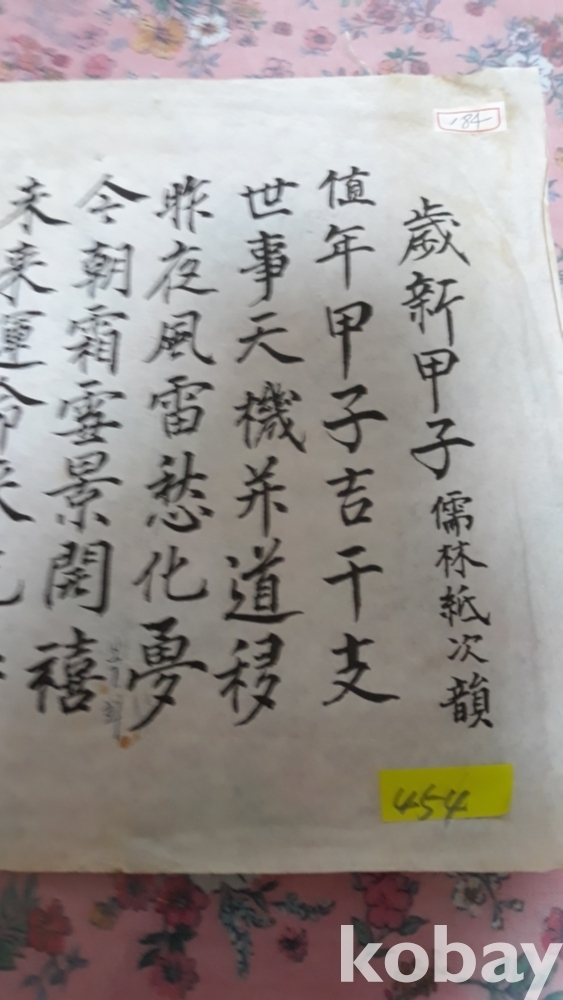 184
歲新甲子 儒林紙次韻
値年甲子吉干支
世事天機并道移
昨夜風雷愁化夢
今朝霜雪景開禧
未来運命
454
kobay